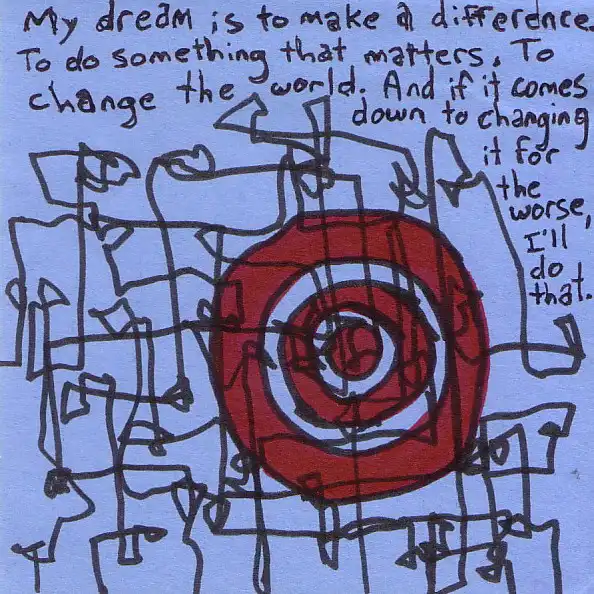 My dream is to make a difference.
To do something that matters. To
change the world. And if it comes
down to changing
it for
the
worse,
I'll
do
that.